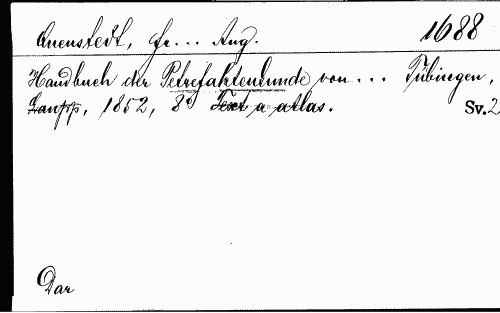 Quenstedt, Fr... Aug. 1688
Handbuch der Petrefaktenkunde von... Tübingen,
Laupp, 1852, 8° Text a atlas. Sv. 2
Dar